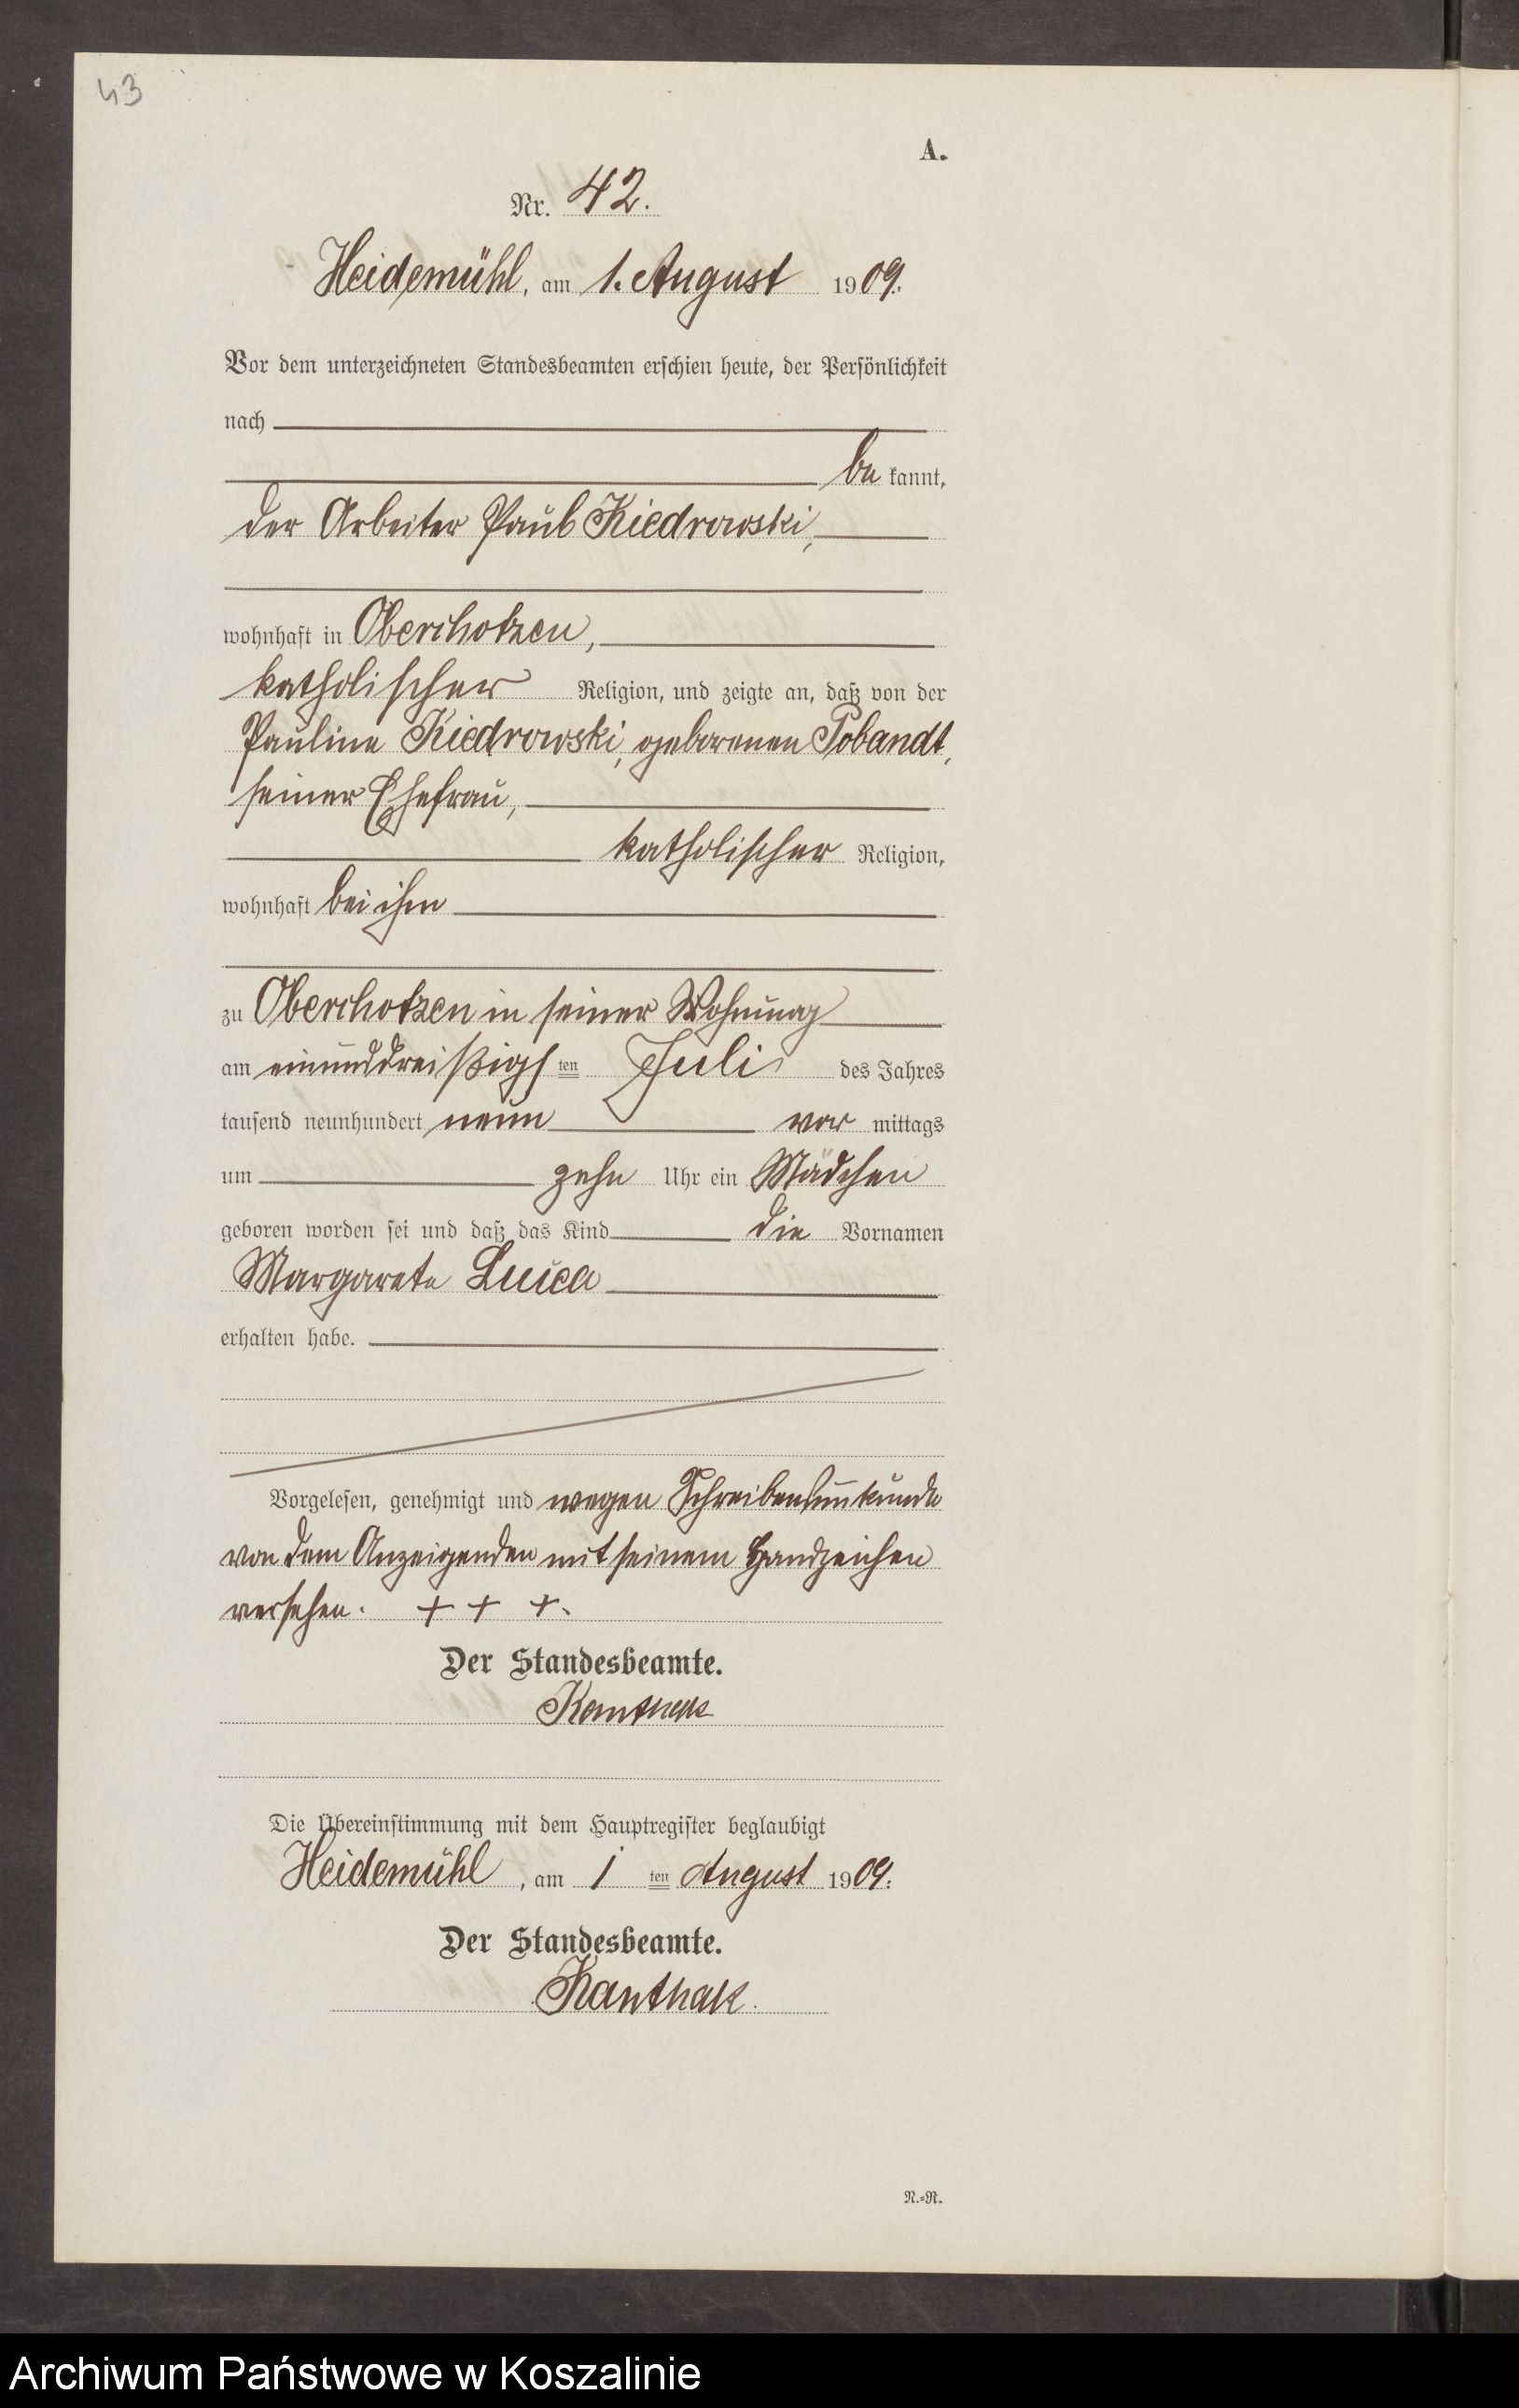 43
A.
Nr. 42.
Heidemühl, am 1. August 1909.
Vor dem unterzeichneten Standesbeamten erschien heute, der Persönlichkeit
nach
be kannt,
der Arbeiter Paul Kiedrowski,
wohnhaft in Oberchotzen,
katholischer Religion, und zeigte an, daß von der
Pauline Kiedrowski, geborenen Pobandt,
seiner Ehefrau,
katholischer Religion,
wohnhaft bei ihm
zu Oberchotzen in seiner Wohnung
am einunddreißigs ten Juli des Jahres
tausend neunhundert neun vor mittags
um zehn Uhr ein Mädchen
geboren worden sei und daß das Kind die Vornamen
Margarete
erhalten habe.
Vorgelesen, genehmigt und wegen Schreibensunkunde
von dem Anzeigenden mit seinem Handzeichen
versehen. + + +.
Der Standesbeamte.
Kanthak
Die Übereinstimmung mit dem Hauptregister beglaubigt
Heidemühl, am 1 ten August 1909.
Der Standesbeamte.
Kanthak.
N.=R.
Archiwum Państwowe w Koszalinie